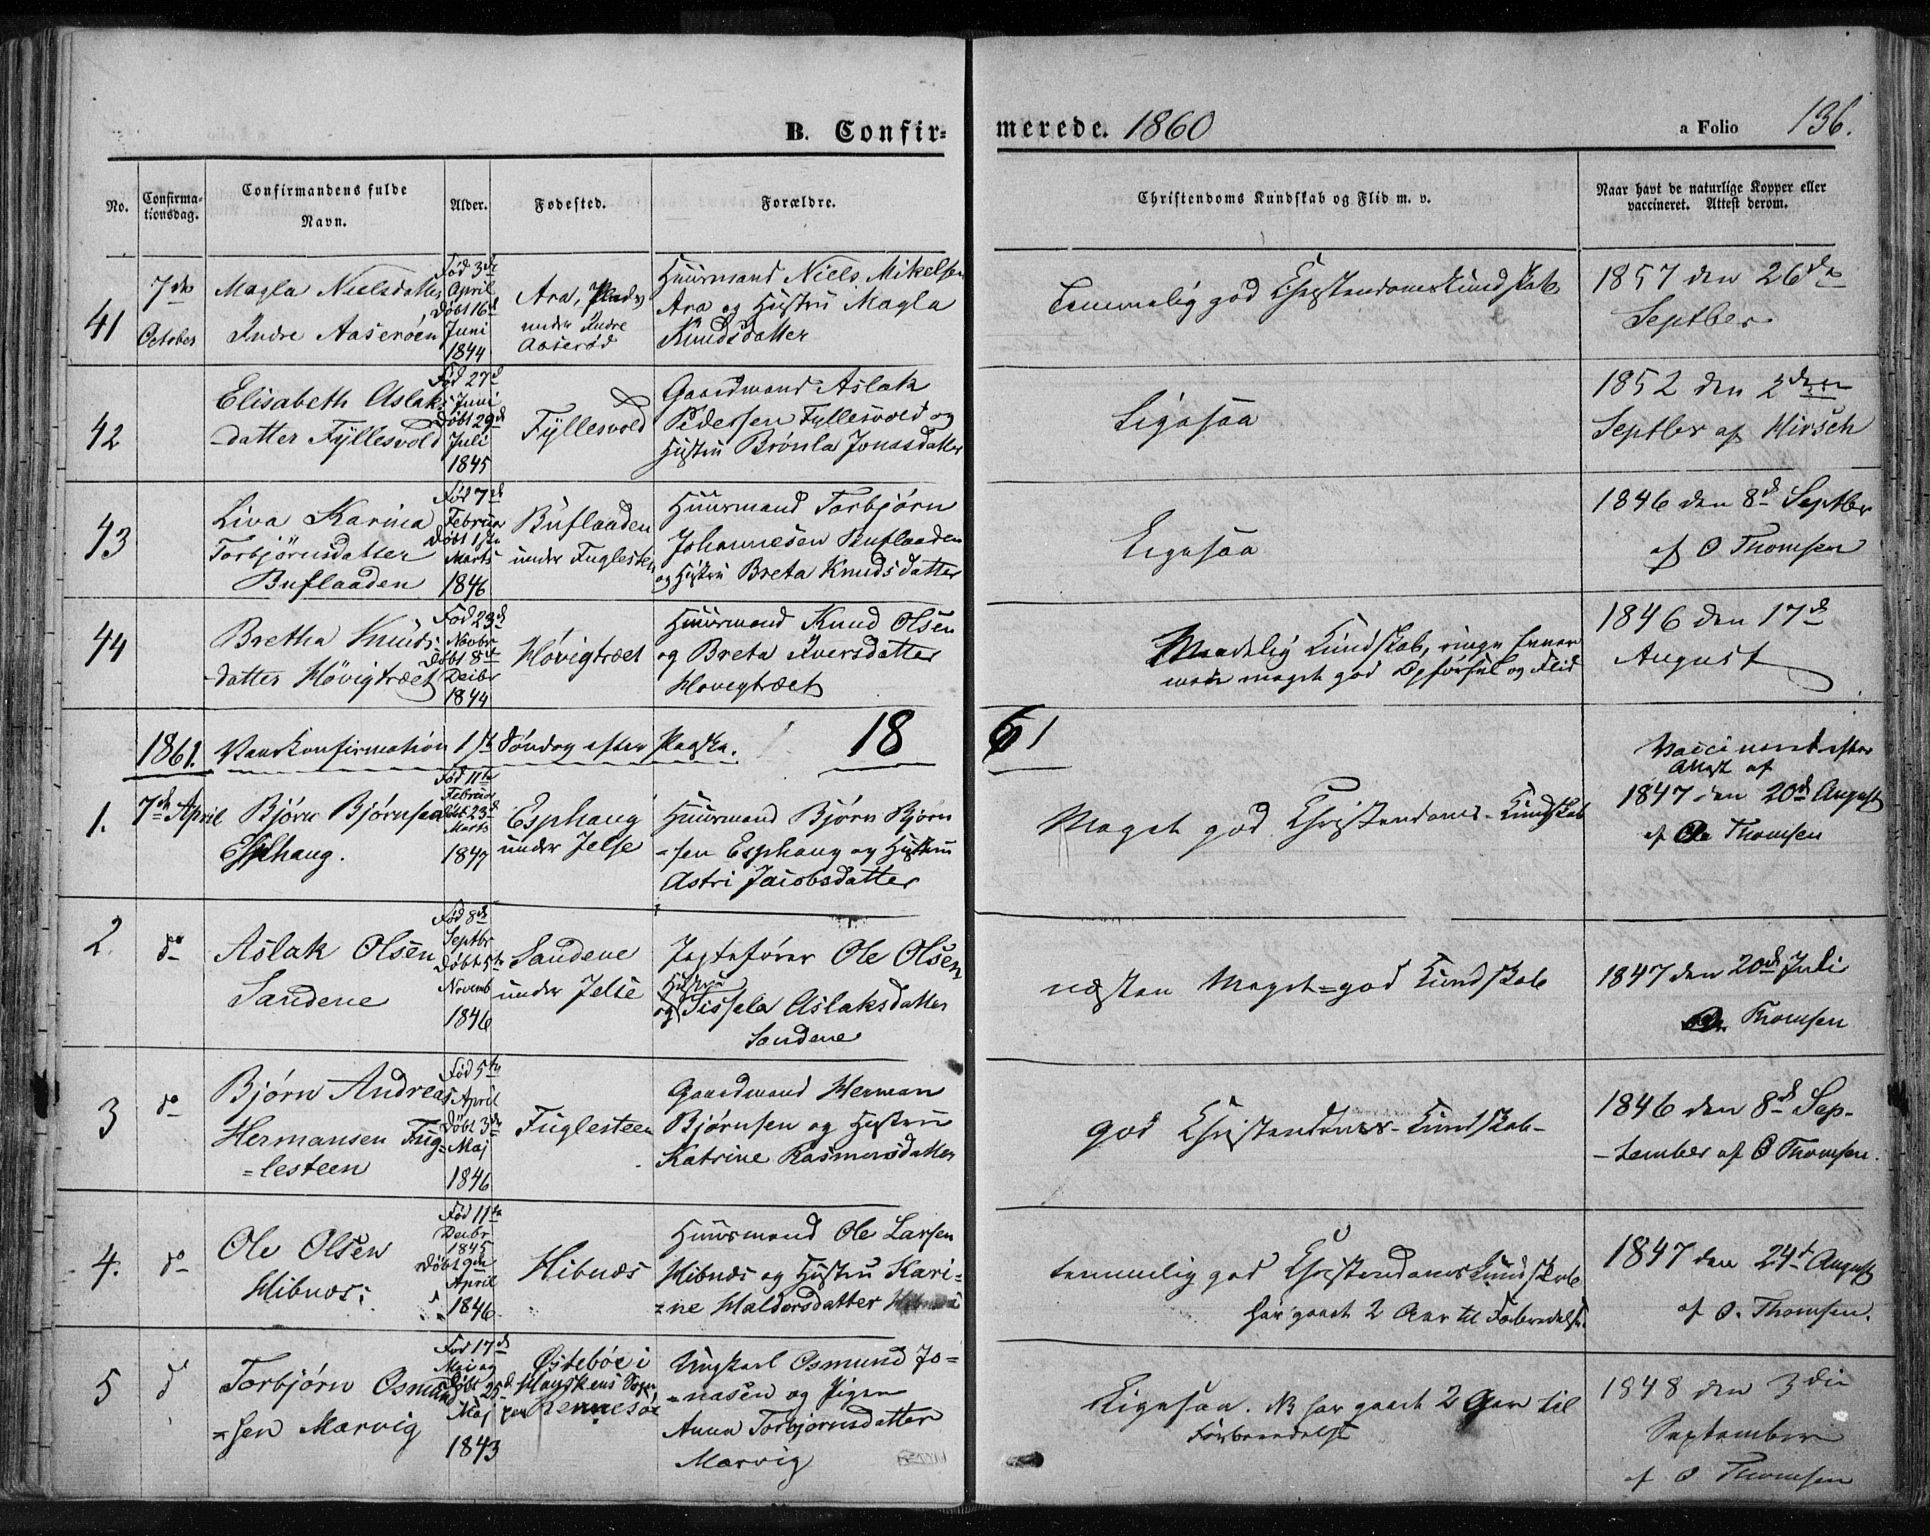 B. Confirmerede. 1860
a Folio 136.
No.
Confirmationsdag.
Confirmandens fulde Navn.
Alder.
Fødested.
Forældre.
Christendoms Kundskab og Flid m. v.
Naar havt de naturlige Kopper eller vaccineret. Attest derom.
41
7de October
Magla Nielsdatter
Indre Aaserøen
Fød 3de
April
Døbt 16d
Juni
1844
Ara, Plads
under Indre
Aaserød
Huusmand Niels Mikelsen
Ara og Hustru Magla
Knudsdatter
Temmelig god Christendomskundskab
1857 den 26de
Septber
42
Elisabeth Aslak-
datter Fyllesvold
Fød 27d
Juni
Døbt 29d
Juli
1845
Fyllesvold
Gaardmand Aslak
Pedersen Fyllesvold og
Hustru Brønla Jonasdatter
Ligesaa
1852 den 2den
Septber af Hirsch
43
Liva Karina
Torbjörnsdatter
Buflaaden
Fød 7d
Februar
Døbt 1ste
Marts
1846
Buflaaden
under Fuglesteen
Huusmand Torbjørn
Johannesen Buflaaden
og Hustru Breta Knudsdatter
Ligesaa
1846 den 8d Septbr
af O Thomsen
44
Bretha Knuds-
datter Høvigtræet
Fød 23d
Novbr
Døbt 8de
Decbr
1844
Høvigtræet
Huusmand Knud Olsen
og Breta Iversdatter
Hovegtræet
Maadelig Kundskab, ringe Evner
men meget god Opførsel og Flid
1846 den 17d
August
1861. Vaarkonfirmation 1ste Søndag efter Paaske.
1861
1.
7de April
Bjørn Bjørnsen
Esphaug.
Fød 11te
Februar
Døbt 23d
Marts
1847
Esphaug
under Jelse
Huusmand Bjørn Bjørn
-sen Esphaug og Hustru
Astri Jacobsdatter
Meget god Christendoms-Kundskab
Vaccineret efter
Attest af
1847 den 20d August
af Ole Thomsen
2.
do
Aslak Olsen
Sandene
Fød 8d
Septbr
Døbt 5te
Novemb
1846
Sandene
under Jelse
Jagtefører Ole Olsen
og Hustru Sissela Aslaksdatter
Sandene
næsten Meget=god Kundskab
1847 den 20d Juli
Thomsen
3
do
Bjørn Andreas
Hermansen Fug-
=lesteen
Fød 5te
April
Døbt 3de
Maj
1846
Fuglesteen
Gaardmand Herman
Bjørnsen og Hustru
Katrine Rasmusdatter
god Christendoms-Kundskab-
1846 den 8d Sep-
-tember af O Thomsen.
4.
do
Ole Olsen
Hibnæs:
Fød 11te
Decbr
1845
Døbt 9de
April
1846
Hibnæs
Huusmand Ole Larsen
Hibnæs og Hustru Kari-
=ne Haldorsdatter Hibnæs
temmelig god Christendomskundskab
har gaaet 2 Aar til Forberedelse.
1847 den 24d August
af O. Thomsen.
5
d
Torbjørn Osmun
=sen Marvig
Fød 17d
Mai og
Døbt 25d
Maj
1843
Østebøe i
Rennesøe
Ungkarl Osmund Jo=
=nasen og Pigen
Anna Torbjørnsdatter
Marvig
Ligesaa. NB har gaaet 2 Aar til
Forberedelse
1848 den 3die
September
af O Thomsen